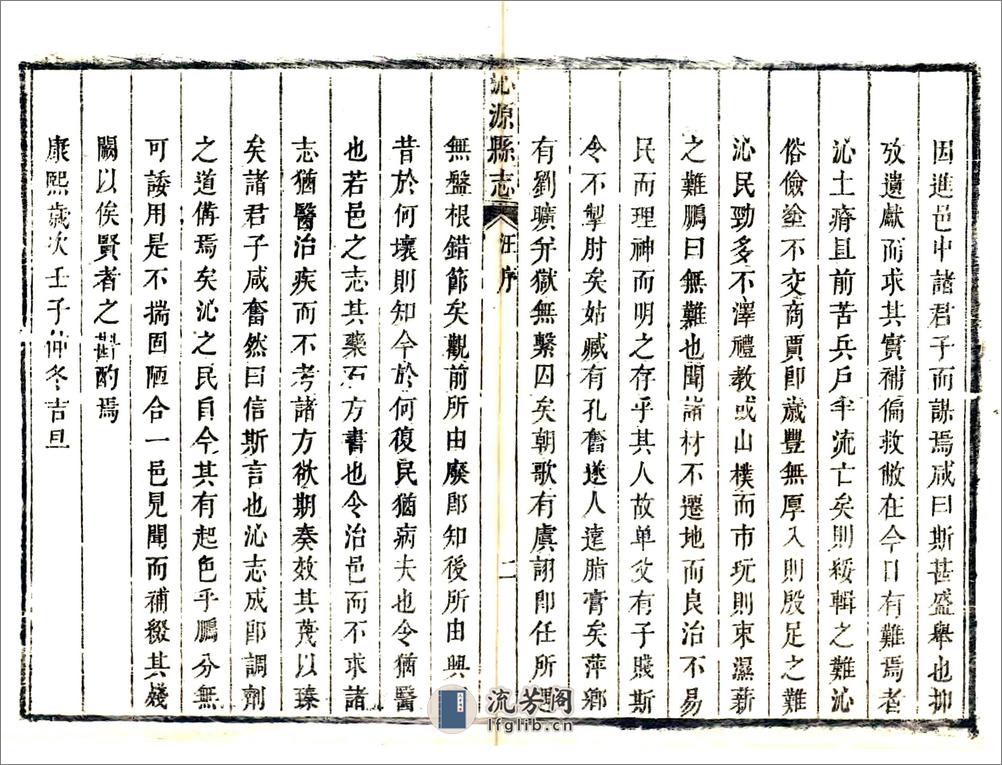 因進邑中諸君子而謀焉咸曰斯甚盛舉也抑
攷遺獻而求其實補偏救敝在今日有難焉者
沁土瘠且前苦兵戶半流亡矣則綏輯之難沁
俗儉塗不交商賈卽歲豐無厚入則殷足之難
沁民勁多不澤禮教或山樸而市玩則束濕薪
之難鵬曰無難也聞諸材不遷地而良治不易
民而理神而明之存乎其人故单父有子賤斯
令不掣肘矣姑臧有孔奮遂人遠脂膏矣萍鄉
有劉曠弁獄無繫囚矣朝歌有虞詡卽任所
沁源縣志
汪序
二
無盤根錯節矣觀前所由廢卽知後所由興
昔於何壞則知今於何復民猶病夫也令猶醫
也若邑之志其藥石方書也令治邑而不求諸
志猶醫治疾而不考諸方欲期奏效其蔑以臻
矣諸君子咸奮然曰信斯言也沁志成卽調劑
之道備焉矣沁之民自今其有起色乎鵬分無
可諉用是不揣固陋合一邑見聞而補綴其殘
闕以俟賢者之斟酌焉
康熙歲次壬子仲冬吉旦
流芳閣
lfglib.cn